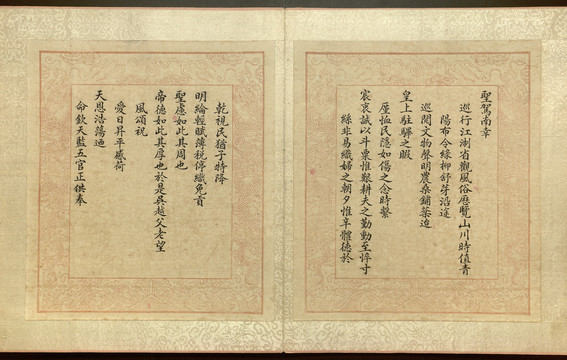 聖駕南幸
巡行江浙省觀風俗歷覽山川時值青
陽布令綠柳舒芽沿途
巡閱文物聲明農桑鋪菜迨
皇上駐驆之暇
厪恤民隱如傷之念時繫
宸衷誠以斗粟惟艱耕夫之勤動至悴寸
絲非易織婦之朝夕惟辛體德於
乾視民猶子特降
明綸輕賦薄稅停織免貢
聖慮如此其周也
帝德如此其厚也於是吳越父老望
風頌祝
愛日昇平感荷
天恩浩蕩迺
命欽天監五官正供奉